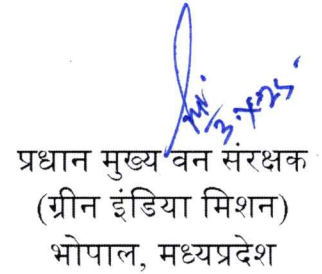 प्रधान मुख्य वन संरक्षक
(ग्रीन इंडिया मिशन)
भोपाल, मध्यप्रदेश